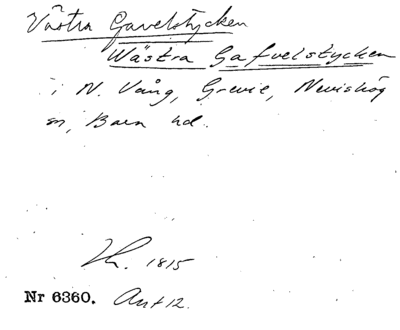 Västra Gavelstycken
Wästra Gafvelstycken
i N. Vång, Grevie, Nevishög
sn, Bara hd.
1815
Nr 6360. Ant 12.